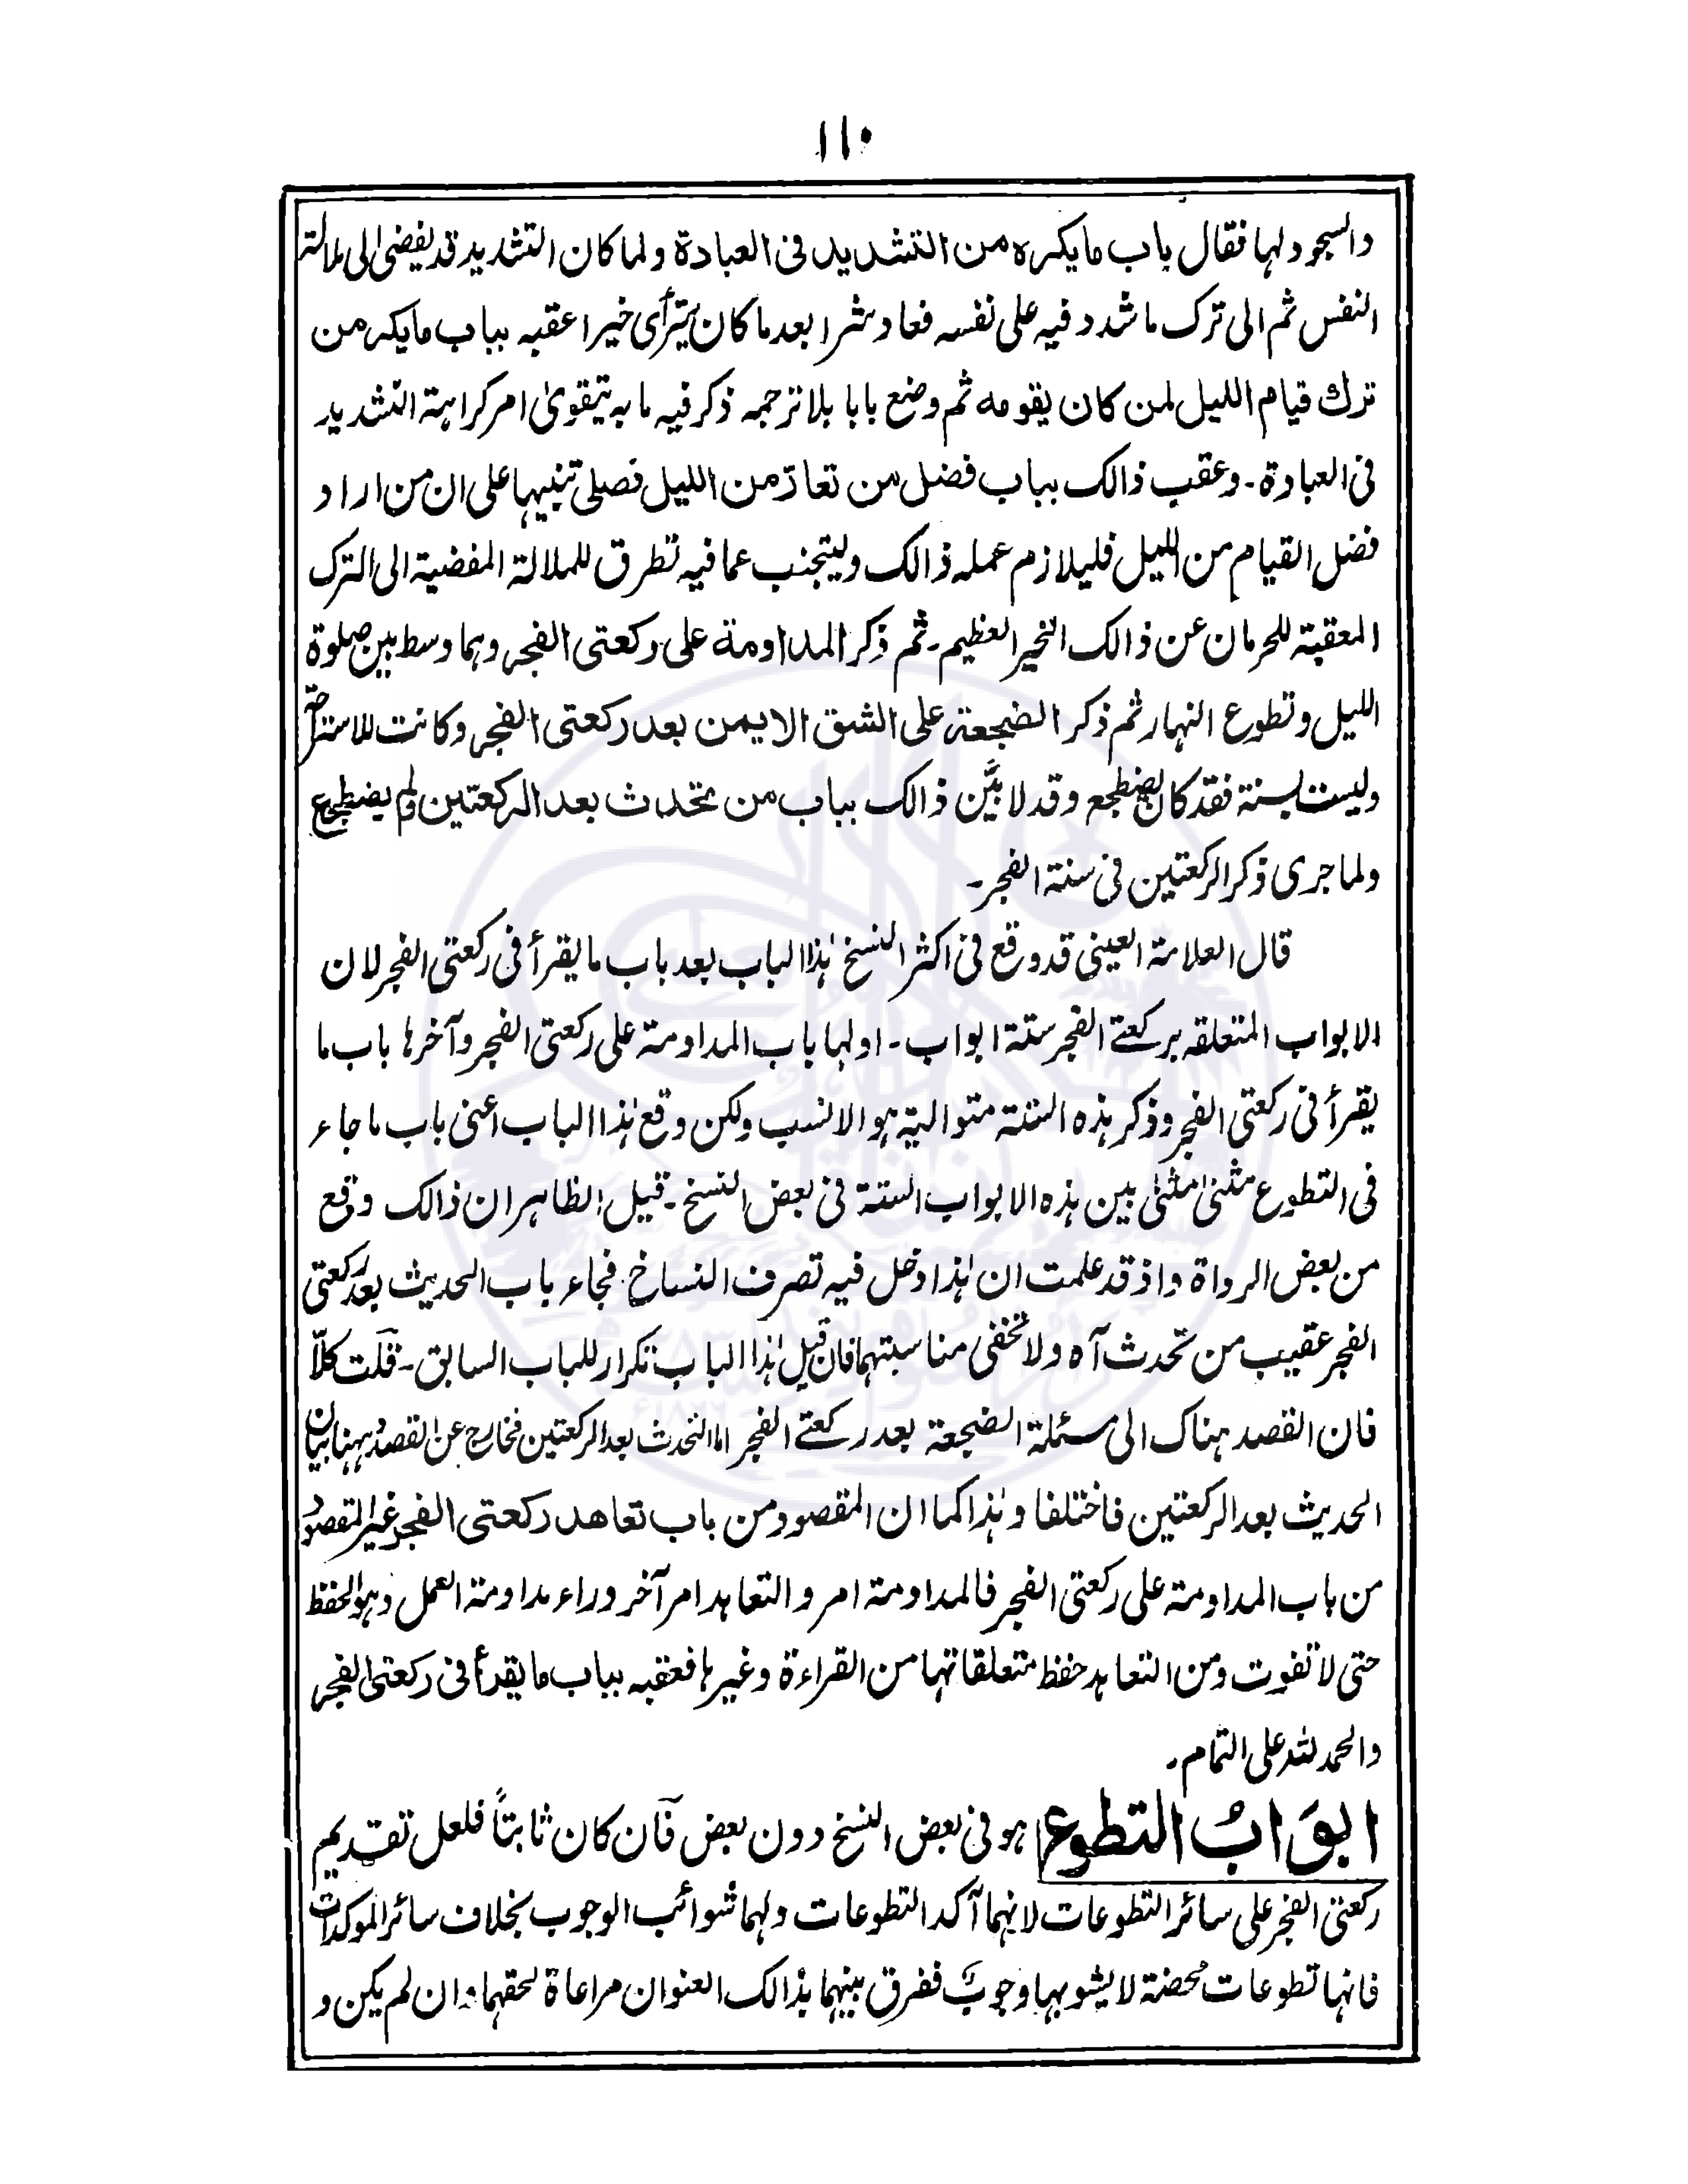 ١١٠
والسجود لها فقال باب مايكره من التشديد فى العبادة ولما كان التشديد قد يفضى الى ملالة
النفس ثم الى ترك ما شدد فيه على نفسه فعاد شرا بعد ما كان يترأى خيرا عقبه بباب مايكره من
ترك قيام الليل لمن كان يقومه ثم وضع بابا بلا ترجمه ذكر فيه ما به يتقوىٰ امر كراهة التشديد
فى العبادة - وعقب ذالك بباب فضل من تعارّ من الليل فصلى تنبيها على ان من اراد
فضل القيام من الليل فليلازم عمله ذالك وليتجنب عما فيه تطرق للملالة المفضية الى الترك
المعقبة للحرمان عن ذالك الخير العظيم - ثم ذكر المداومة على ركعتى الفجر وهما وسط بين صلوة
الليل وتطوع النهار ثم ذكر الضجعة على الشق الايمن بعد ركعتى الفجر وكانت للاستراحة
وليست بسنة فقد كان يضطجع وقد لا بيَّن ذالك بباب من تحدث بعد الركعتين ولم يضطجع
ولما جرى ذكر الركعتين فى سنة الفجر -
قال العلامة العينى قد وقع فى اكثر النسخ هٰذا الباب بعد باب ما يقرأ فى ركعتى الفجر لان
الابواب المتعلقه بركعتے الفجر ستة ابواب - اولها باب المداومة على ركعتى الفجر وآخرها باب ما
يقرأ فى ركعتى الفجر وذكر هذه الستة متوالية هو الانسب ولكن وقع هٰذا الباب اعنى باب ما جاء
فى التطوع مثنىٰ مثنىٰ بين هذه الابواب الستة فى بعض النسخ - قيل الظاهر ان ذالك وقع
من بعض الرواة واذ قد علمت ان هٰذا دخل فيه تصرف النساخ فجاء باب الحديث بعد ركعتى
الفجر عقيب من تحدث آه ولا تخفى مناسبتهما فان قيل هٰذا الباب تكرار للباب السابق - قلت كلّا
فان القصد هناك الى مسئلة الضجعة بعد ركعتے الفجر اما التحدث بعد الركعتين فخارج عن القصد وههنا بيان
الحديث بعد الركعتين فاختلفا وهٰذا كما ان المقصود من باب تعاهد ركعتى الفجر غير المقصود
من باب المداومة على ركعتى الفجر فالمداومة امر والتعاهد امر آخر وراء مداومة العمل وهو الحفظ
حتى لا تفوت ومن التعاهد حفظ متعلقاتها من القراءة وغيرها فعقبه بباب ما يقرأ فى ركعتى الفجر
والحمد لله على التمام -
ابوَابُ التطوع هو فى بعض النسخ دون بعض فان كان ثابتاً فلعل تقديم
ركعتى الفجر على سائر التطوعات لانهما آكد التطوعات ولهما شوائب الوجوب بخلاف سائر الموكدات
فانها تطوعات محضة لا يشوبها وجوب ففرق بينهما بذالك العنوان مراعاة لحقهما وان لم يكن و